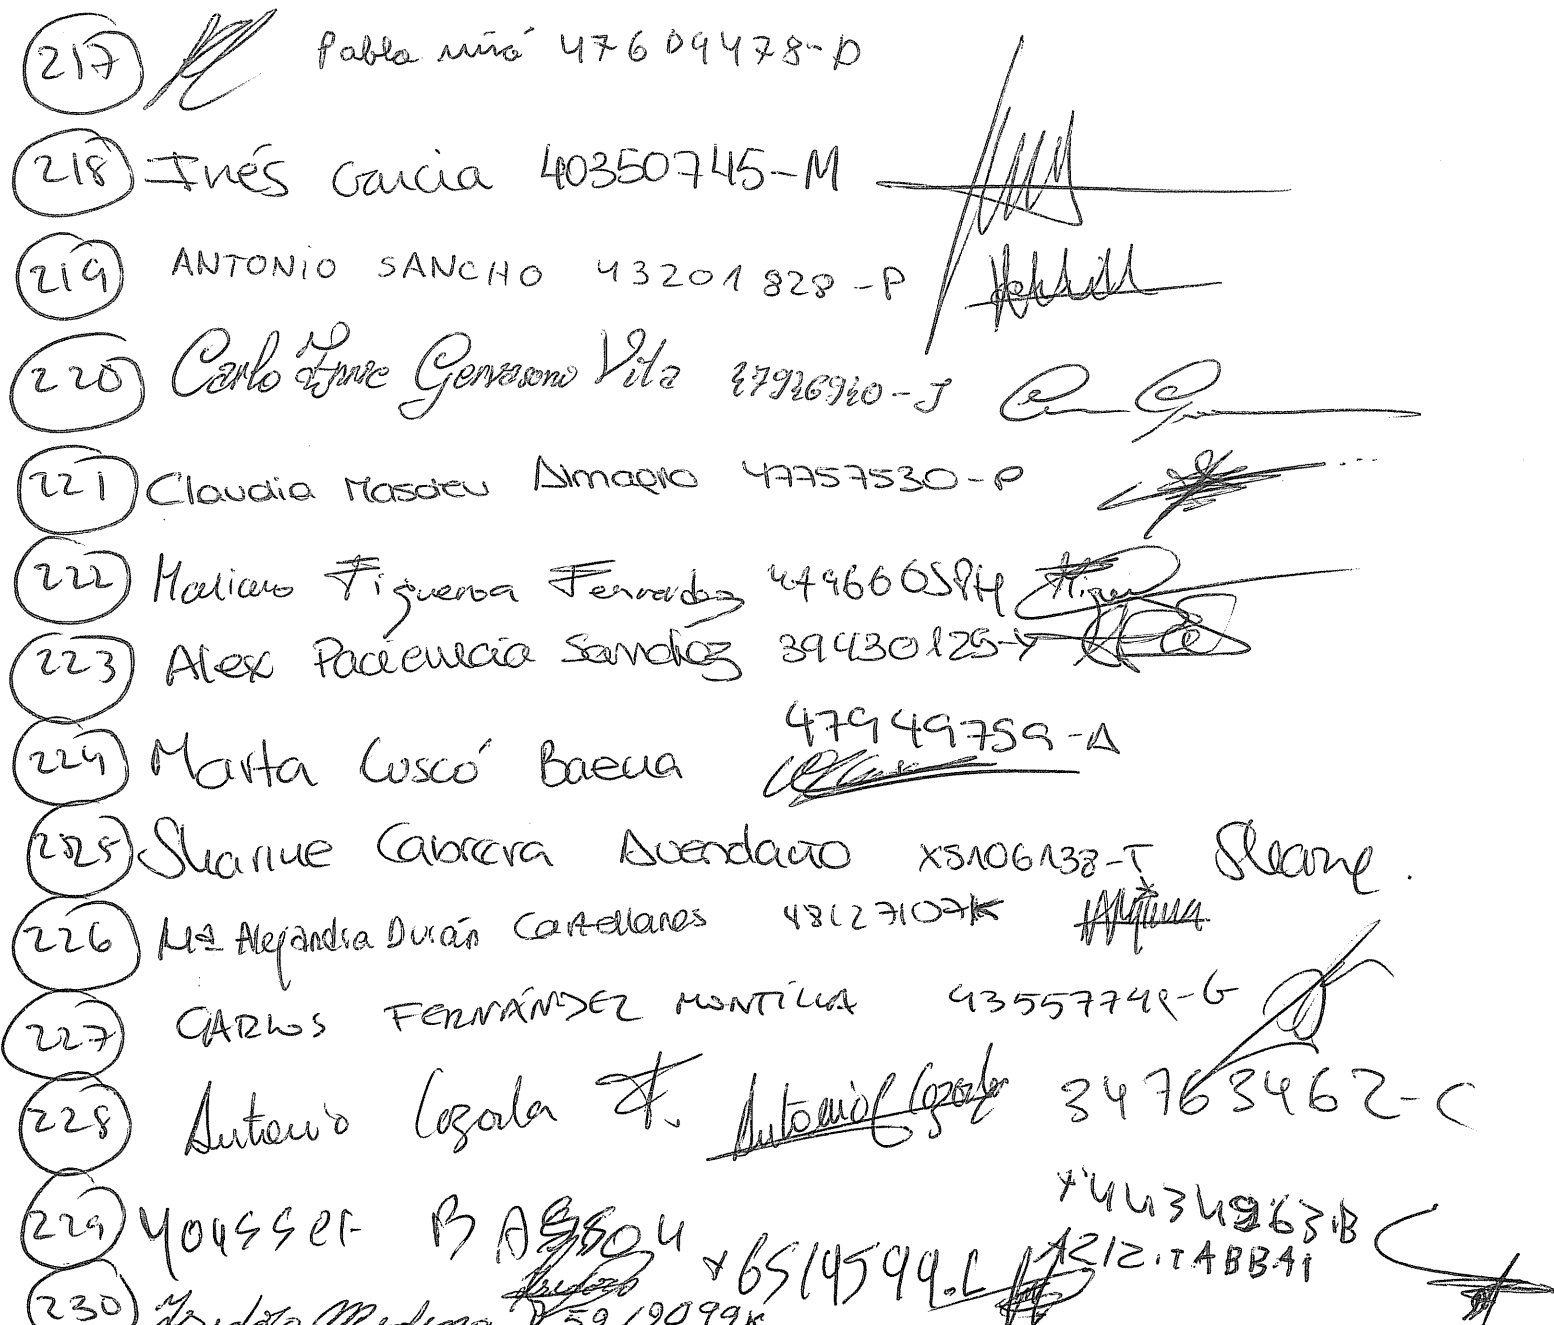 217 Pabla miró 47609478-D
218 Inés Garcia 40350745-M
219 ANTONIO SANCHO 43201828-P
220 Carlo Gervasono Vita 47926940-J
221 Claudia Masdeu Almagro 47757530-P
222 Mariano Figueroa Fernandez
223 Alex Paciencia Sanchez 39430125-Y
224 Marta Cuscó Baena 47949759-A
225 Sharine Cabrera Avendaño X5106138-T
226 Mª Alejandra Durán Castellanos 48127107K
227 CARLOS FERNÁNDEZ MONTILLA 43557749-G
228 Antonio Lozada F. Antonio Lozada 34763462-C
229 Youssef BASSOU X6514599.L
AZIZ.TABBAI
230